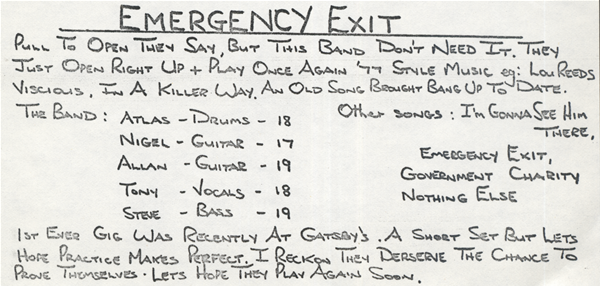 EMERGENCY EXIT
PULL TO OPEN THEY SAY, BUT THIS BAND DON'T NEED IT. THEY
JUST OPEN RIGHT UP + PLAY ONCE AGAIN '77 STYLE MUSIC eg: LOU REEDS
VISCIOUS, IN A KILLER WAY. AN OLD SONG BROUGHT BANG UP TO DATE.
THE BAND : ATLAS - DRUMS - 18
NIGEL - GUITAR - 17
ALLAN - GUITAR - 19
TONY - VOCALS - 18
STEVE - BASS - 19
OTHER SONGS : I'M GONNA SEE HIM
THERE,
EMERGENCY EXIT,
GOVERNMENT CHARITY
NOTHING ELSE
1ST EVER GIG WAS RECENTLY AT GATSBY'S. A SHORT SET BUT LETS
HOPE PRACTICE MAKES PERFECT. I RECKON THEY DERSERVE THE CHANCE TO
PROVE THEMSELVES. LETS HOPE THEY PLAY AGAIN SOON.